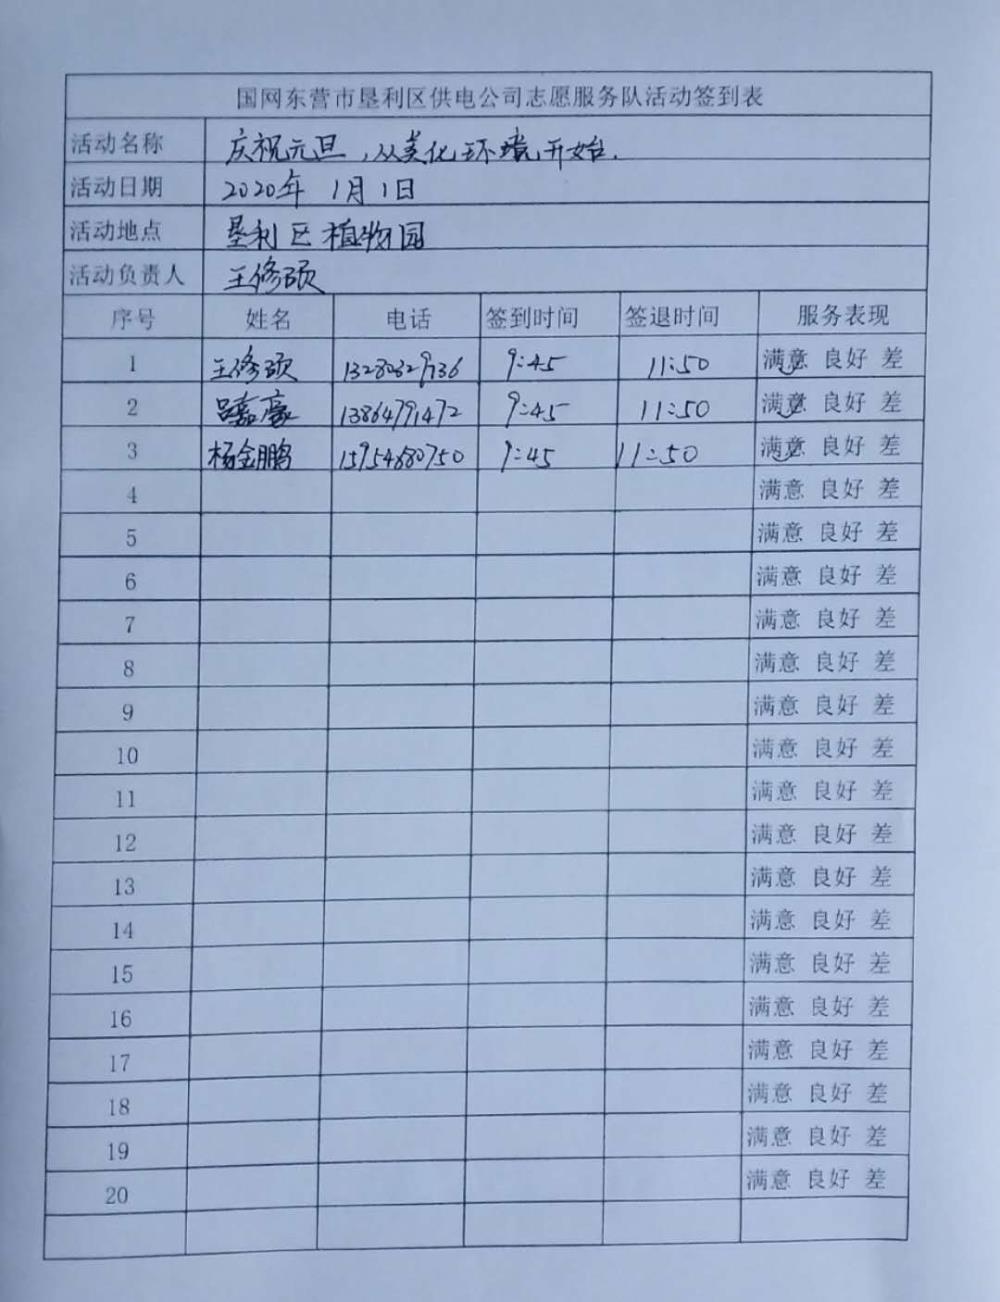 国网东营市垦利区供电公司志愿服务队活动签到表
活动名称 庆祝元旦,从美化环境,开始.
活动日期 2020年 1月1日
活动地点 垦利区植物园
活动负责人 王修硕
序号 姓名 电话 签到时间 签退时间 服务表现
1 王修硕 9:45 11:50 满意 良好 差
2 吕嘉豪 13864791472 9:45 11:50 满意 良好 差
3 杨金鹏 15954680750 9:45 11:50 满意 良好 差
4 满意 良好 差
5 满意 良好 差
6 满意 良好 差
7 满意 良好 差
8 满意 良好 差
9 满意 良好 差
10 满意 良好 差
11 满意 良好 差
12 满意 良好 差
13 满意 良好 差
14 满意 良好 差
15 满意 良好 差
16 满意 良好 差
17 满意 良好 差
18 满意 良好 差
19 满意 良好 差
20 满意 良好 差